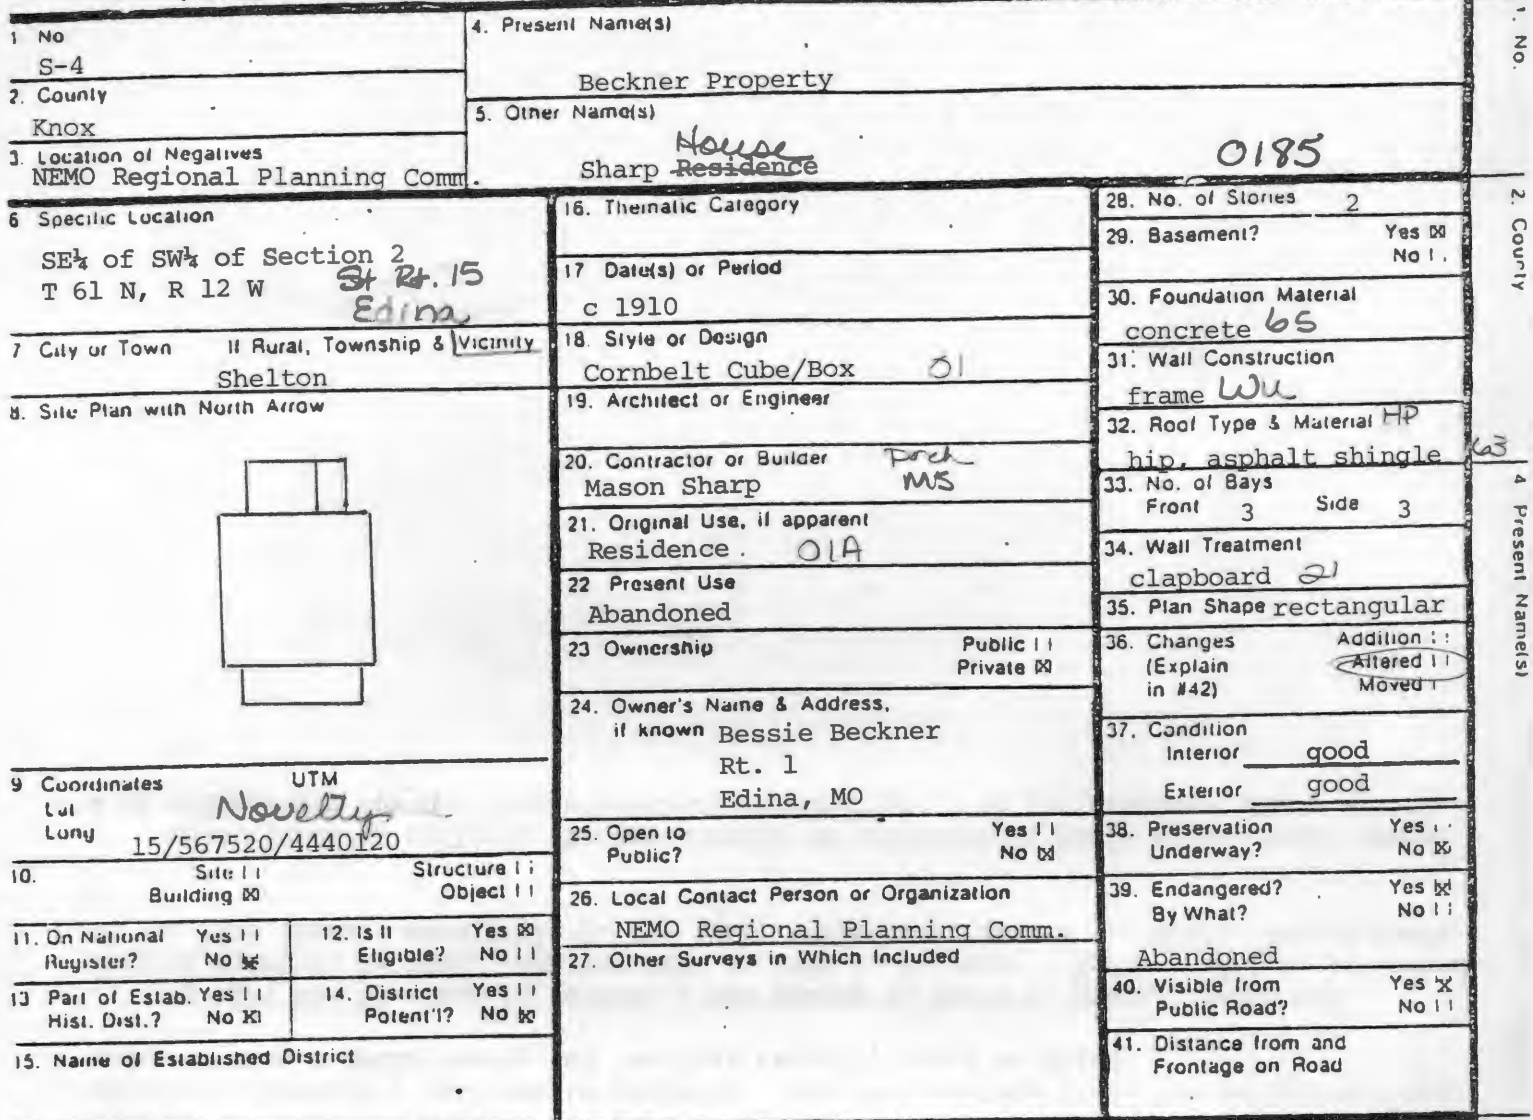 1 No
S-4
2. County
Knox
3. Location of Negatives
NEMO Regional Planning Comm.
4. Present Name(s)
Beckner Property
5. Other Name(s)
House
Sharp Residence
0185
6 Specific Location
SE¼ of SW¼ of Section 2
T 61 N, R 12 W
St Rt. 15
Edina
7 City or Town If Rural, Township & Vicinity
Shelton
8. Site Plan with North Arrow
9 Coordinates UTM
Lat
Novelty
Long
15/567520/4440120
10. Site Structure
Building ☒ Object
11. On National Register? Yes
No ☒
12. Is It Eligible? Yes ☒
No
13 Part of Estab. Yes
Hist. Dist.? No ☒
14. District Yes
Potent'l? No ☒
15. Name of Established District
16. Thematic Category
17 Date(s) or Period
c 1910
18. Style or Design
Cornbelt Cube/Box 01
19. Architect or Engineer
20. Contractor or Builder
Mason Sharp
Porch
MS
21. Original Use, if apparent
Residence. 01A
22 Present Use
Abandoned
23 Ownership Public
Private ☒
24. Owner's Name & Address,
if known Bessie Beckner
Rt. 1
Edina, MO
25. Open to Yes
Public? No ☒
26. Local Contact Person or Organization
NEMO Regional Planning Comm.
27. Other Surveys in Which Included
28. No. of Stories 2
29. Basement? Yes ☒
No
30. Foundation Material
concrete 65
31. Wall Construction
frame WU
32. Roof Type & Material HP
hip, asphalt shingle 63
33. No. of Bays
Front 3 Side 3
34. Wall Treatment
clapboard 21
35. Plan Shape rectangular
36. Changes Addition
(Explain Altered
in #42) Moved
37. Condition
Interior good
Exterior good
38. Preservation Yes
Underway? No ☒
39. Endangered? Yes ☒
By What? No
Abandoned
40. Visible from Yes ☒
Public Road? No
41. Distance from and
Frontage on Road
1. No.
2. County
4 Present Name(s)